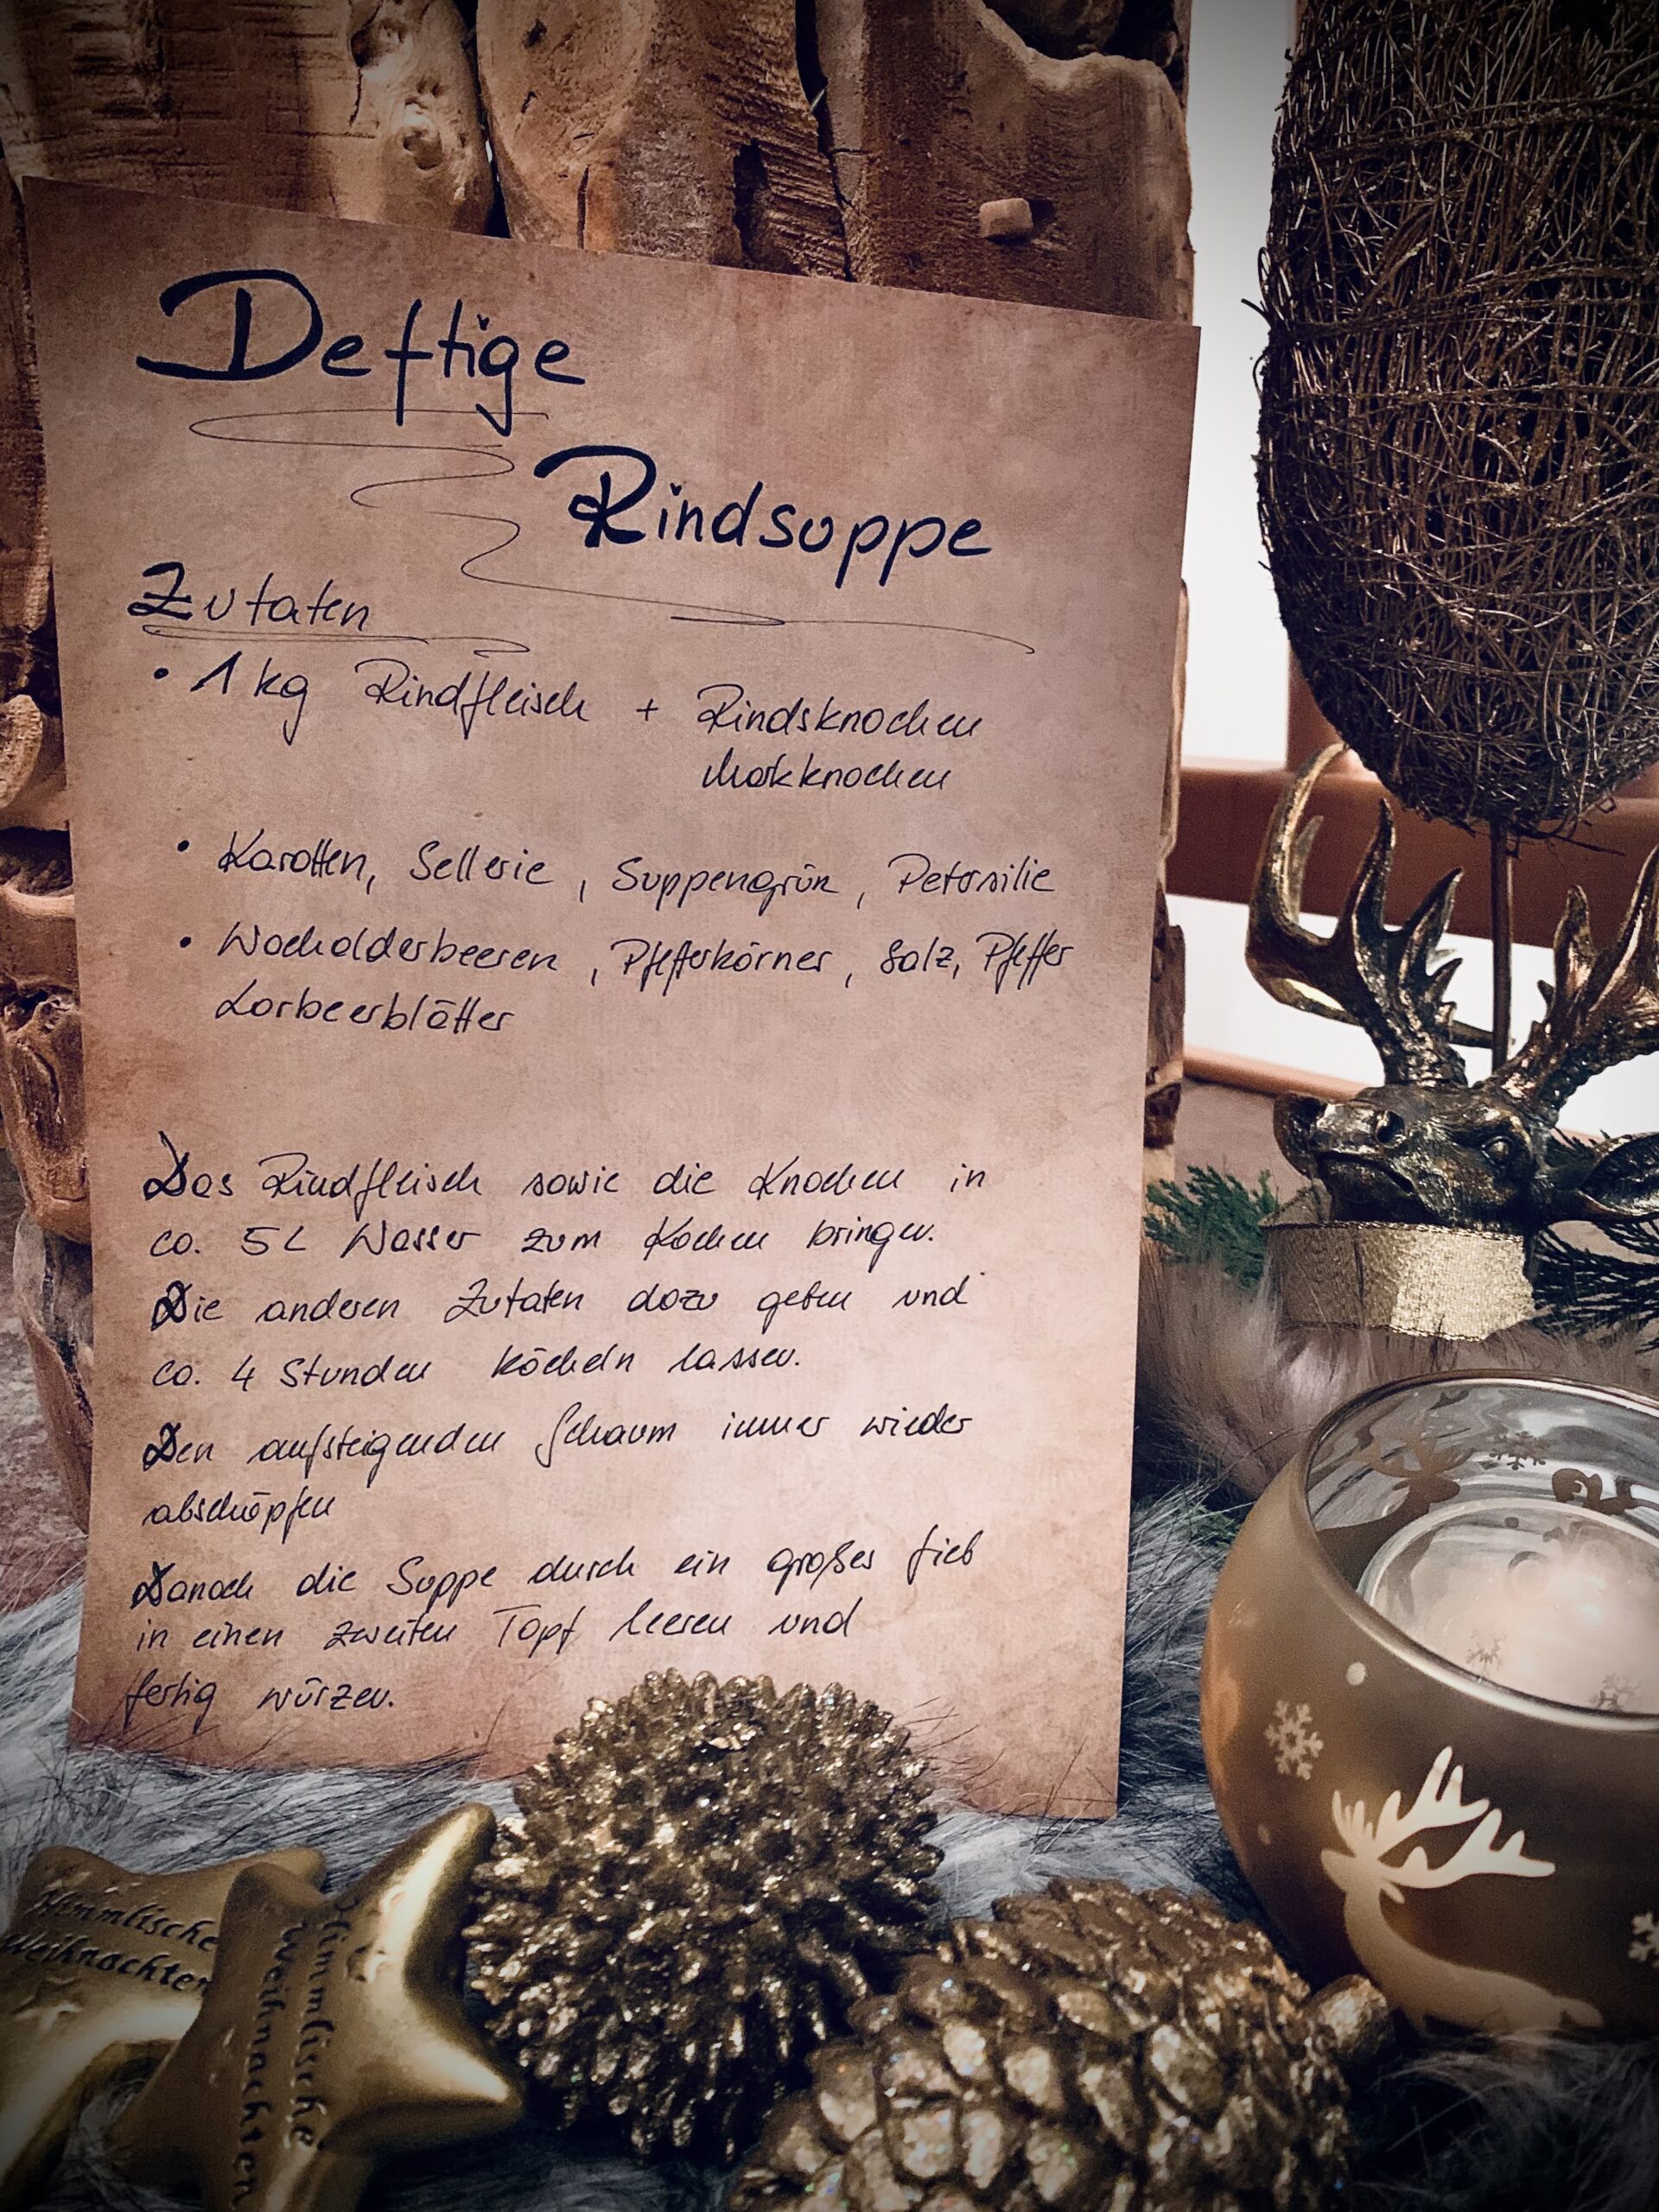 Deftige
Rindsuppe
Zutaten
• 1 kg Rindfleisch + Rindsknochen
Markknochen
• Karotten, Sellerie, Suppengrün, Petersilie
• Wacholderbeeren, Pfefferkörner, Salz, Pfeffer
Lorbeerblätter
Das Rindfleisch sowie die Knochen in
ca. 5L Wasser zum Kochen bringen.
Die anderen Zutaten dazu geben und
ca. 4 Stunden köcheln lassen.
Den aufsteigenden Schaum immer wieder
abschöpfen
Danach die Suppe durch ein großes Sieb
in einen zweiten Topf leeren und
fertig würzen.
Himmlische
Weihnachten
Himmlische
Weihnachten